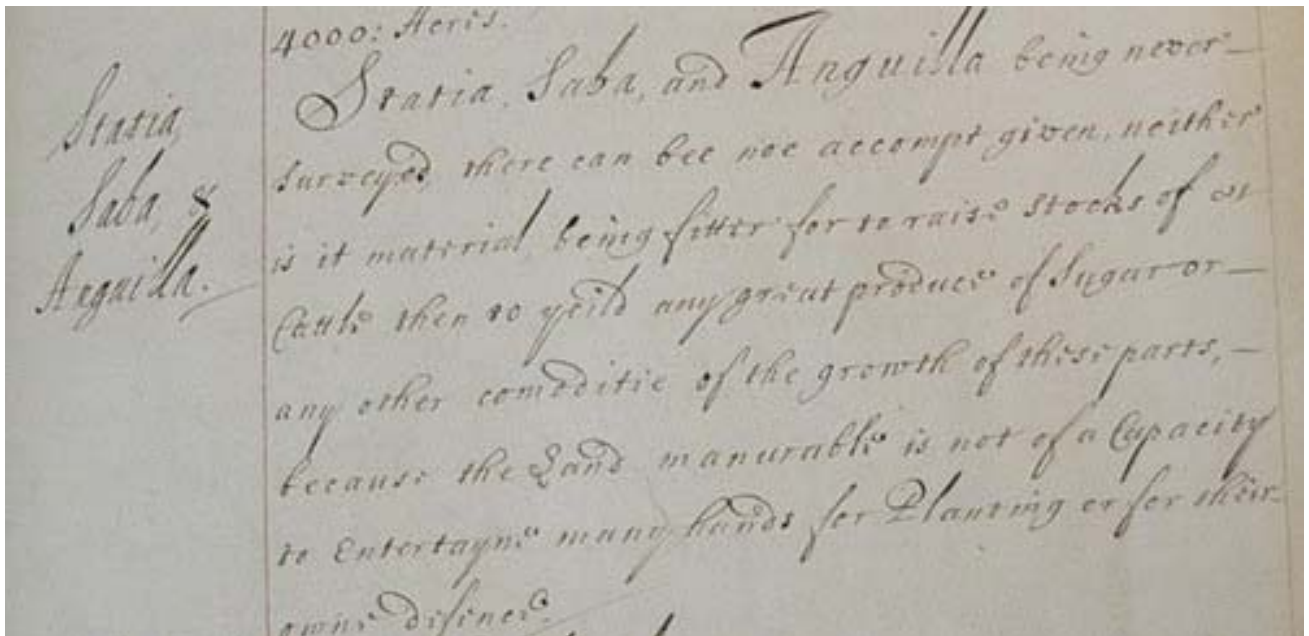 4000: Acres.
Statia,
Saba, &
Anguilla.
Statia, Saba, and Anguilla being never—
surveyed, there can bee noe accompt given, neither
is it material, being fitter for to raise Stocks of
Cattle then to yeild any great produce of Sugar or—
any other comoditie of the growth of these parts,—
because the Land manurable is not of a Capacity
to Entertayne many hands for Planting or for their
owne defence.